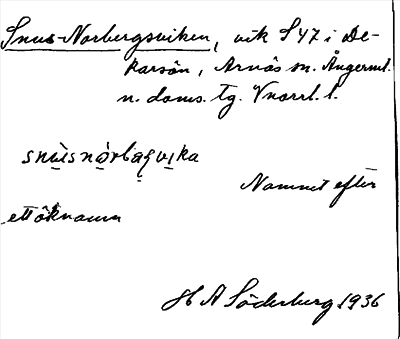 Snus-Norbergsviken, vik S 47 i De-
karsön, Arnäs sn. Ångerml.
n. doms. tg. Vnorrl. l.
snùsnórbaʒvika
Namnet efter
ett öknamn
H A Söderberg 1936